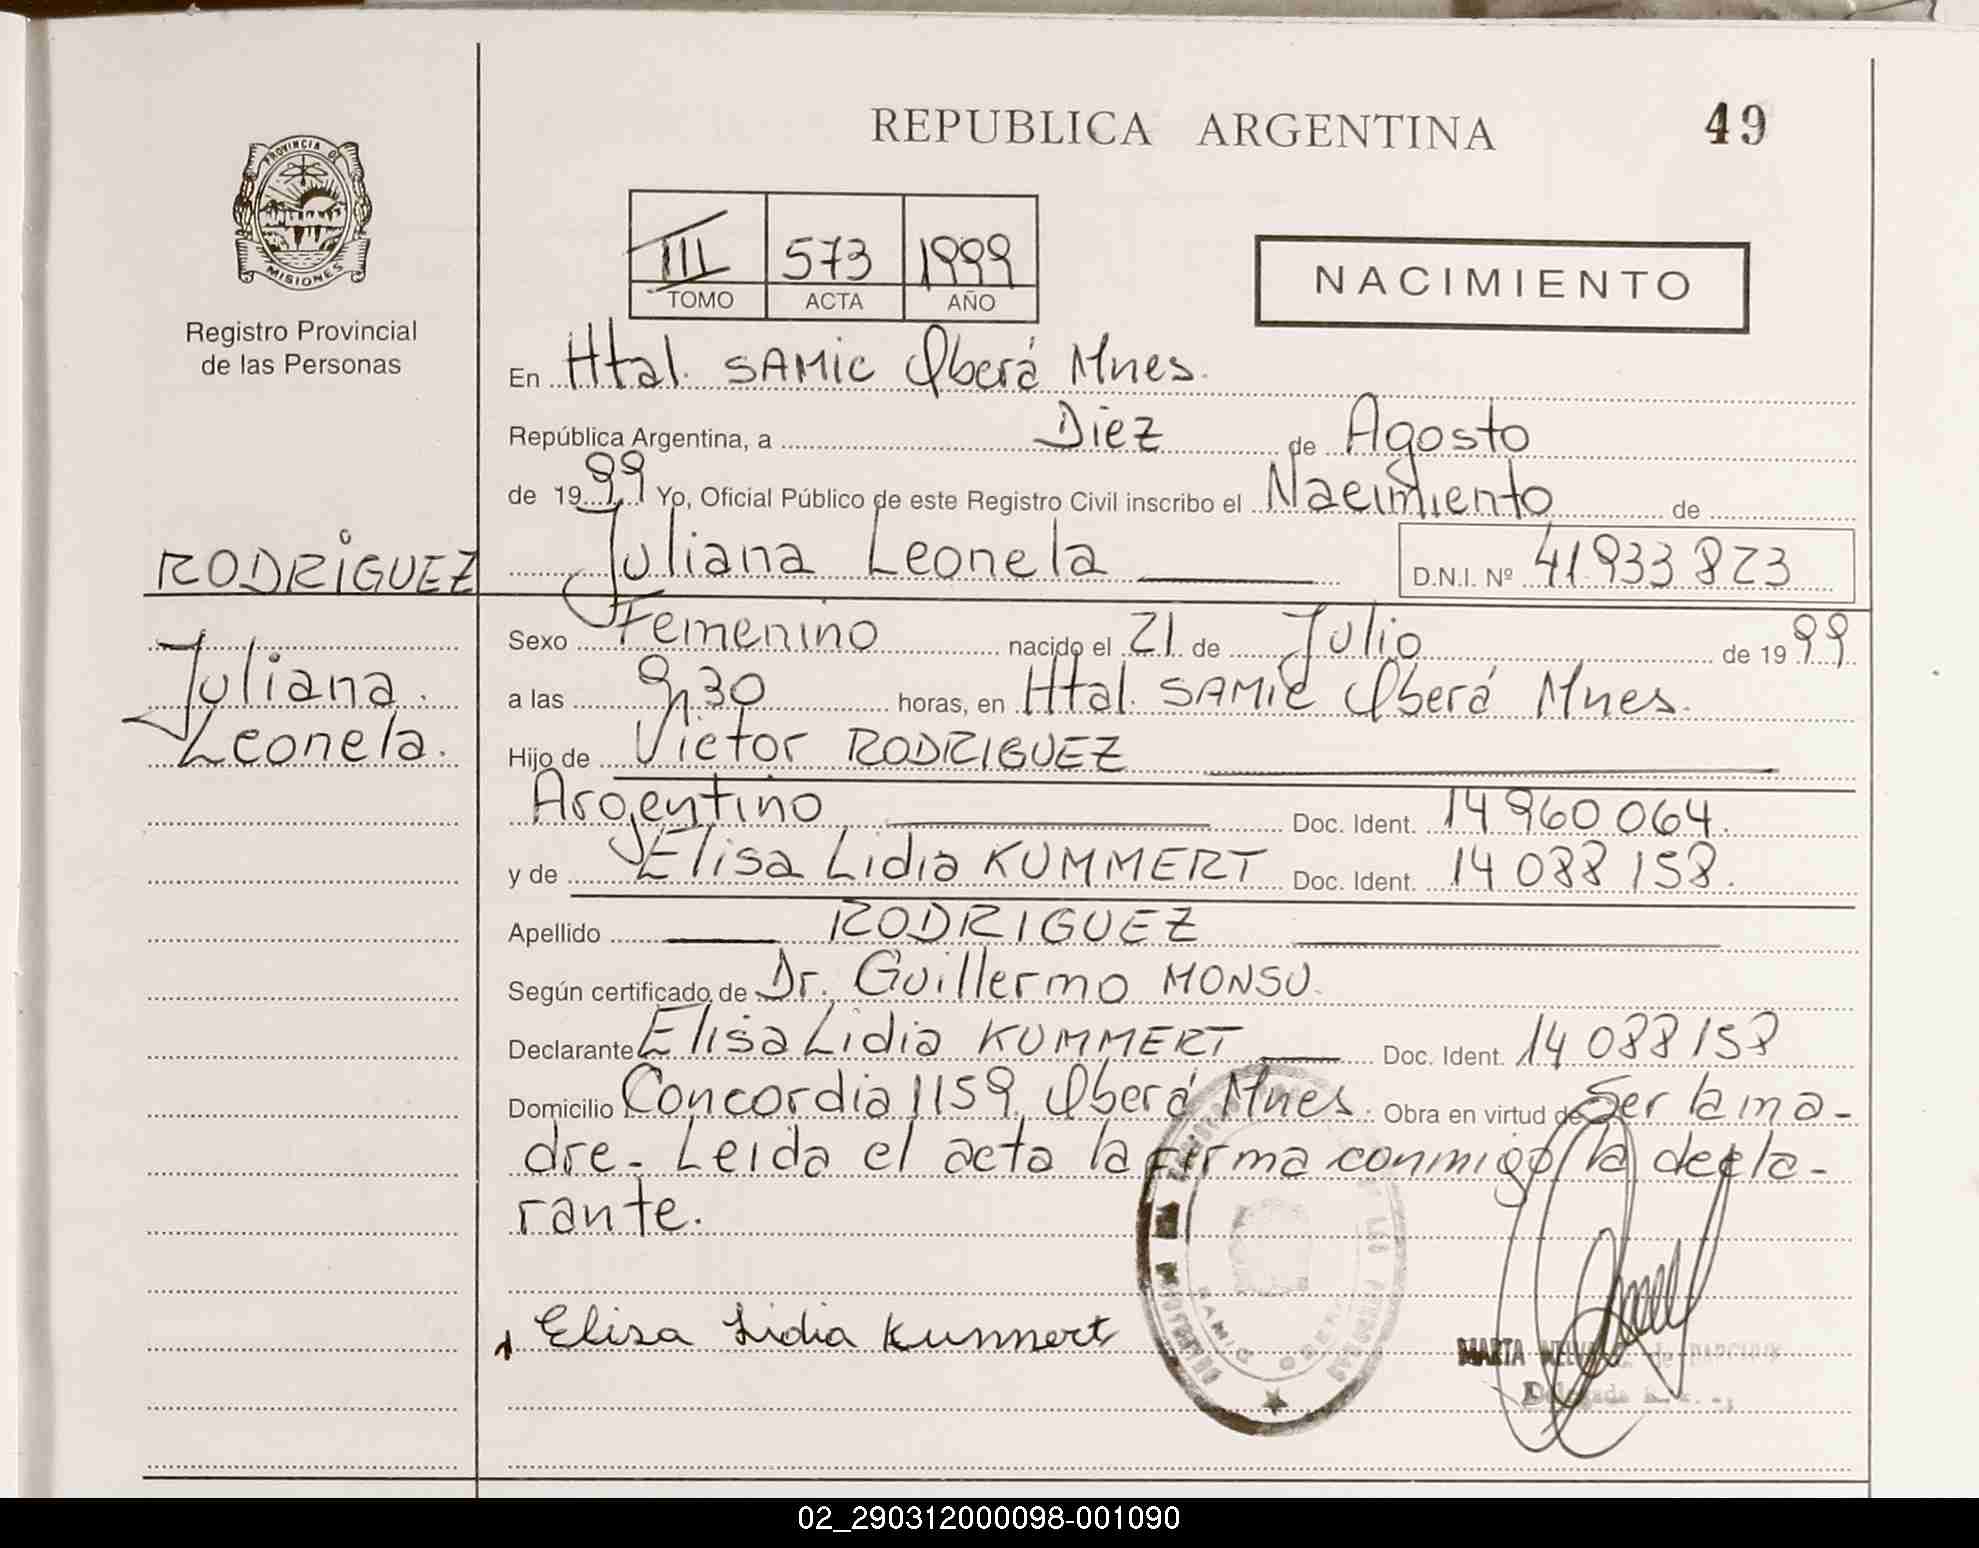 REPUBLICA ARGENTINA
49
PROVINCIA DE
MISIONES
Registro Provincial
de las Personas
III 573 1999
TOMO ACTA AÑO
NACIMIENTO
En Htal. SAMIC Oberá Mnes.
República Argentina, a Diez de Agosto
de 1999 Yo, Oficial Público de este Registro Civil inscribo el Nacimiento de
RODRIGUEZ
Juliana Leonela
D.N.I. Nº 41.933 823
Juliana
Leonela.
Sexo Femenino nacido el 21 de Julio de 1999
a las 9,30 horas, en Htal. SAMIC Oberá Mnes.
Hijo de Victor RODRIGUEZ
Argentino Doc. Ident. 14 960 064.
y de Elisa Lidia KUMMERT Doc. Ident. 14 088 158.
Apellido RODRIGUEZ
Según certificado de Dr. Guillermo MONSU
Declarante Elisa Lidia KUMMERT Doc. Ident. 14 088 158
Domicilio Concordia 1159, Oberá Mnes. Obra en virtud de Ser la ma-
dre. Leida el acta la firma conmigo la decla-
rante.
Elisa Lidia Kummert
MARTA
Delegada
02_290312000098-001090